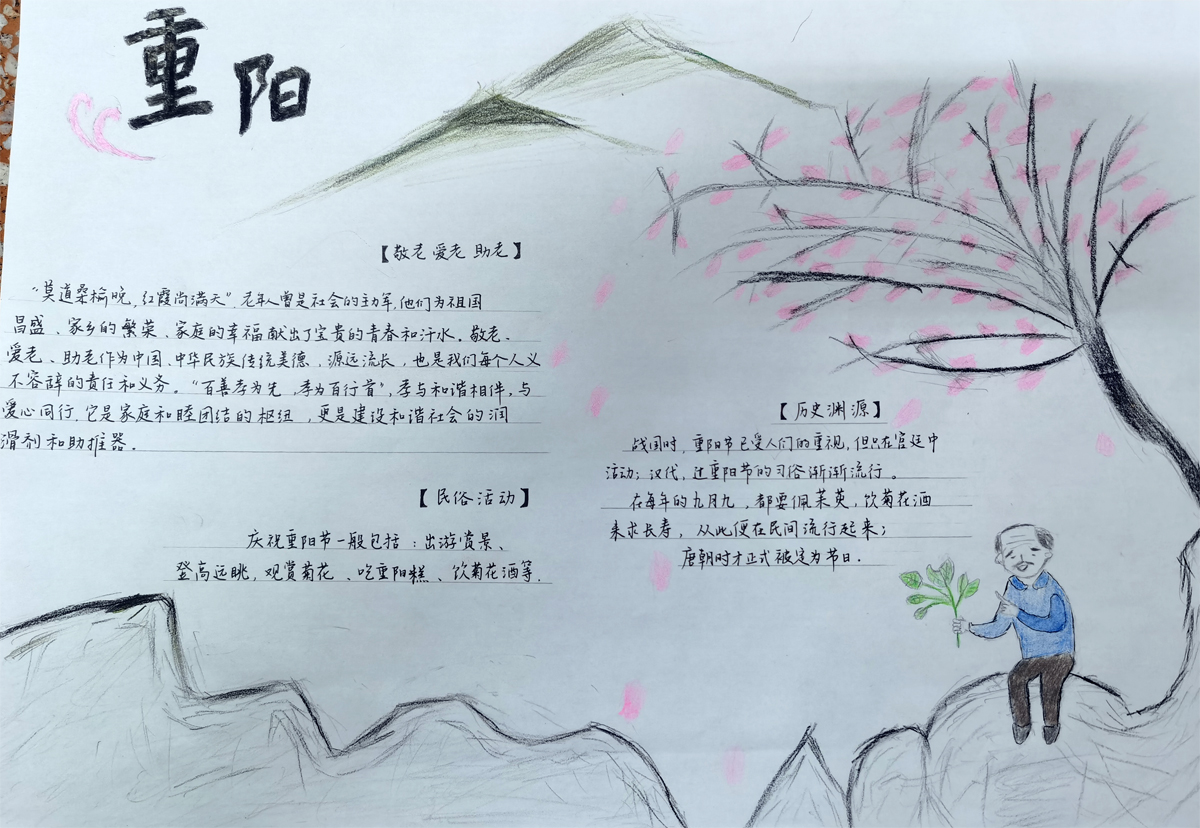 重阳
【敬老 爱老 助老】
“莫道桑榆晚，红霞尚满天”，老年人曾是社会的主力军，他们为祖国
昌盛、家乡的繁荣、家庭的幸福献出了宝贵的青春和汗水。敬老、
爱老、助老作为中国、中华民族传统美德，源远流长，也是我们每个人义
不容辞的责任和义务。“百善孝为先，孝为百行首”，孝与和谐相伴，与
爱心同行，它是家庭和睦团结的枢纽，更是建设和谐社会的润
滑剂和助推器。
【民俗活动】
庆祝重阳节一般包括：出游赏景、
登高远眺，观赏菊花、吃重阳糕、饮菊花酒等.
【历史渊源】
战国时，重阳节已受人们的重视，但只在宫廷中
活动；汉代，过重阳节的习俗渐渐流行。
在每年的九月九，都要佩茱萸，饮菊花酒
来求长寿，从此便在民间流行起来；
唐朝时才正式被定为节日.